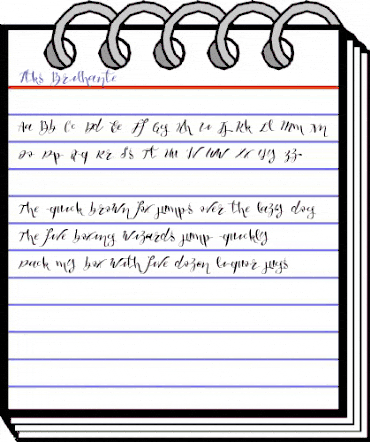 Aks Brilhante
Aa Bb Cc Dd Ee Ff Gg Hh Ii Jj Kk Ll Mm Nn
Oo Pp Qq Rr Ss Tt Uu Vv Ww Xx Yy Zz
The quick brown fox jumps over the lazy dog
The five boxing wizards jump quickly
Pack my box with five dozen liquor jugs